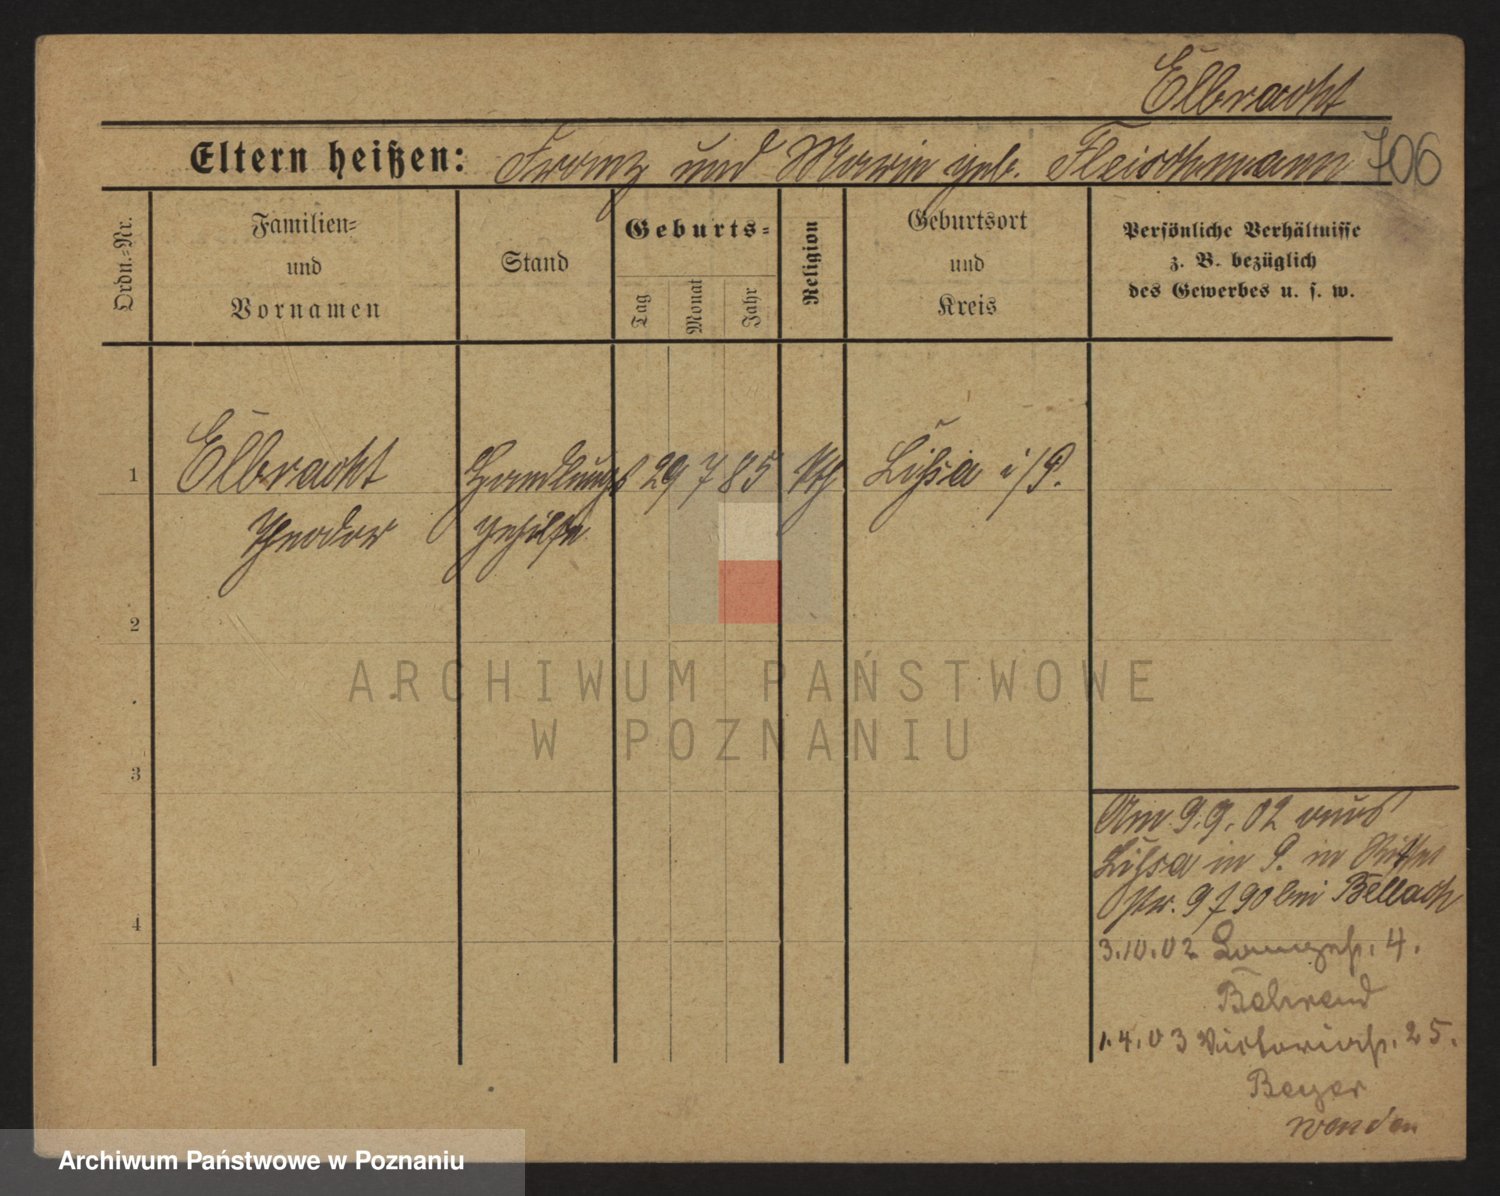 Elbracht
Eltern heißen: Franz und Marie geb. Fleischmann 706
Ordn.-Nr.
Familien-
und
Vornamen
Stand
Geburts-
Tag
Monat
Jahr
Religion
Geburtsort
und
Kreis
Persönliche Verhältnisse
z. B. bezüglich
des Gewerbes u. s. w.
1 Elbracht Handlungs 29 7 85 kth Lissa i/P.
Theodor gehülfe
2
3
4
Am 9.9.02 aus
Lissa in P. in
Nr. 9790 bei Bellach
3.10.02 Langestr. 4.
Behrend
1.4.03 Victoriastr. 25.
Beyer
wenden
ARCHIWUM PAŃSTWOWE
W POZNANIU
Archiwum Państwowe w Poznaniu